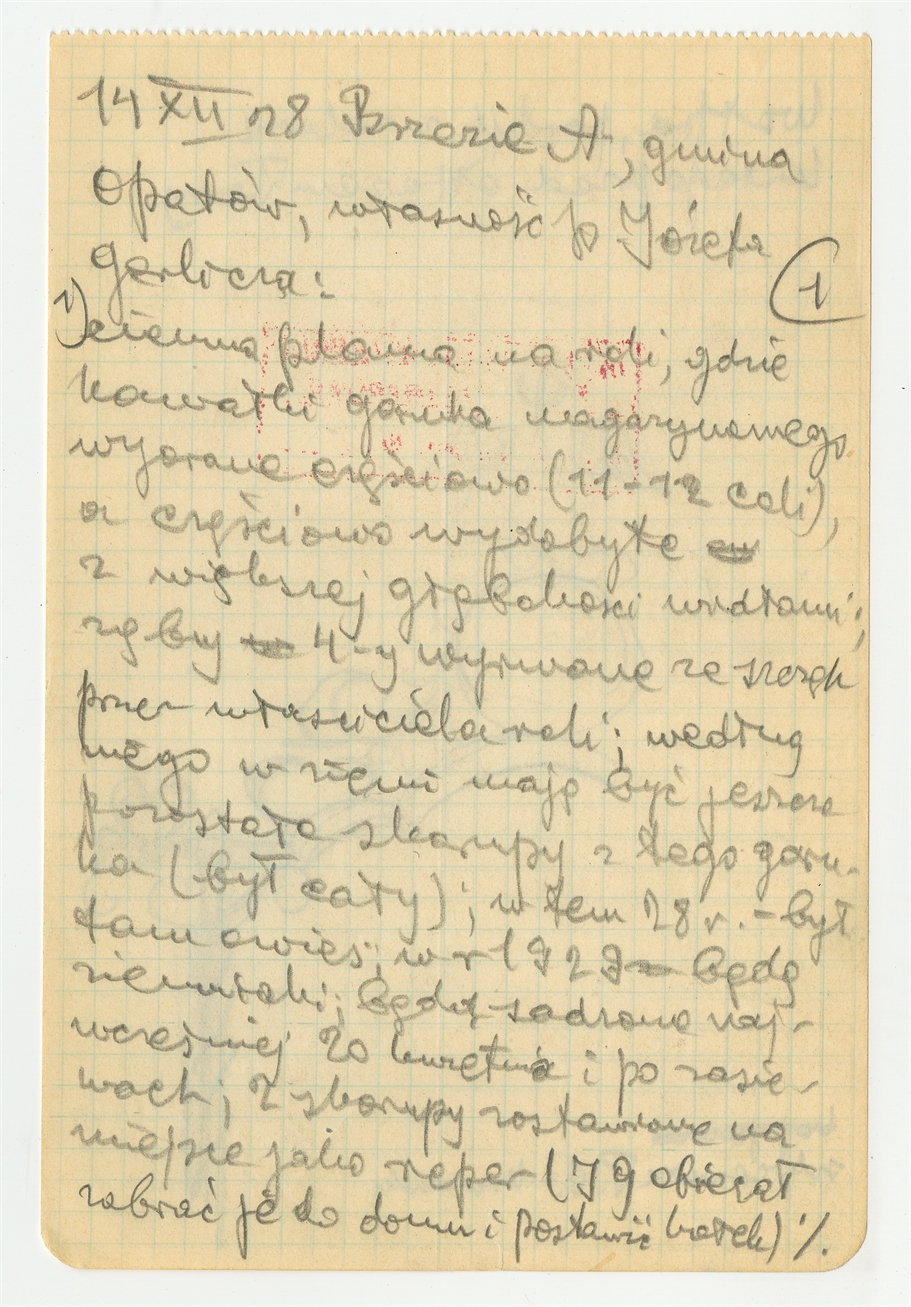 14 XII 28 Brzezie A, gmina
Opatów, własność p Józefa
Garlicza:
①
1) ciemna plama na roli, gdzie
kawałki garnka magazynowego
wyorane częściowo (11-12 cali),
a częściowo wydobyte
z większej głębokości widłami;
zęby 4-y wyrwane ze szczęk
przez właściciela roli; według
niego w ziemi mają być jeszcze
pozostałe skorupy z tego garn-
ka (był cały); w tem 28 r. - był
tam owies; w r 1929 będą
ziemniaki; będą sadzone naj-
wcześniej 20 kwietnia i po zasie-
wach; 2 skorupy zostawione na
miejscu jako reper (JG obiecał
zabrać je do domu i postawić kołek) ·/.